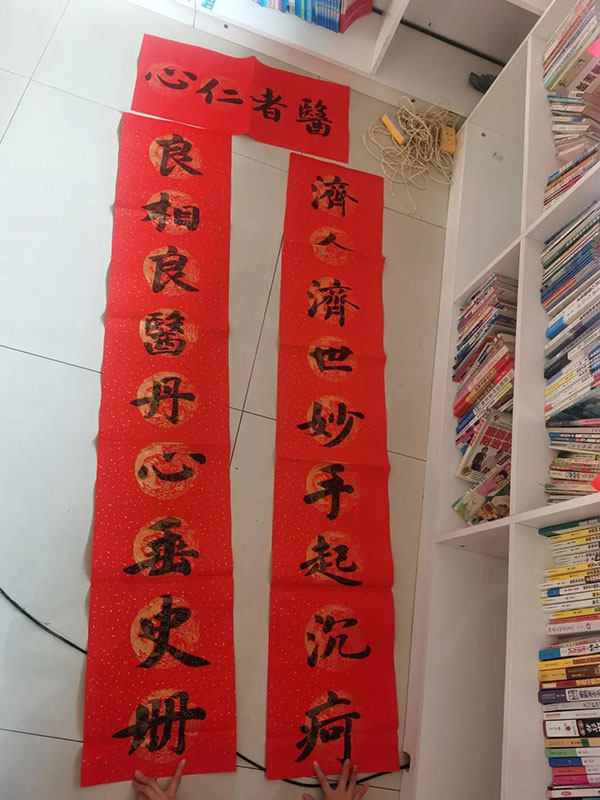 醫者仁心
濟人濟世妙手起沉疴
良相良醫丹心垂史冊